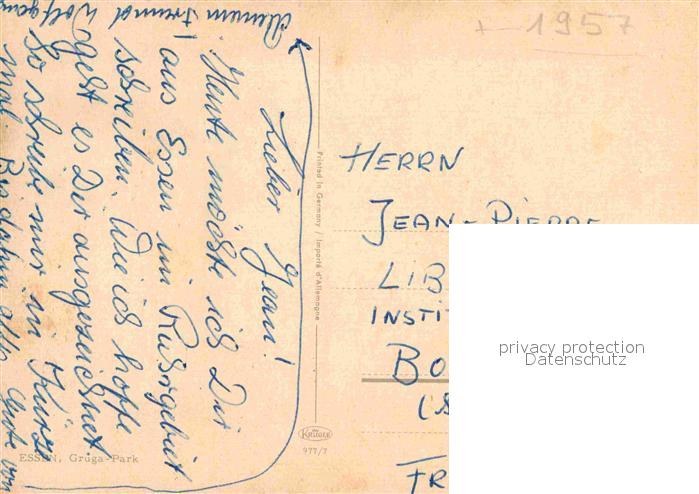 + 1957
Lieber Jean!
Heute möchte ich Dir
aus Essen im Ruhrgebiet
schreiben. Wie ich hoffe
geht es Dir ausgezeichnet.
So schreib mir in Kürze
mal. Bis dahin alles Gute von
Deinem Freund Wolfgang
Printed in Germany / Importé d'Allemagne
KRÜGER
977/7
ESSEN, Gruga-Park
HERRN
JEAN-PIERRE
LIB
INSTIT
BO
FR
privacy protection
Datenschutz